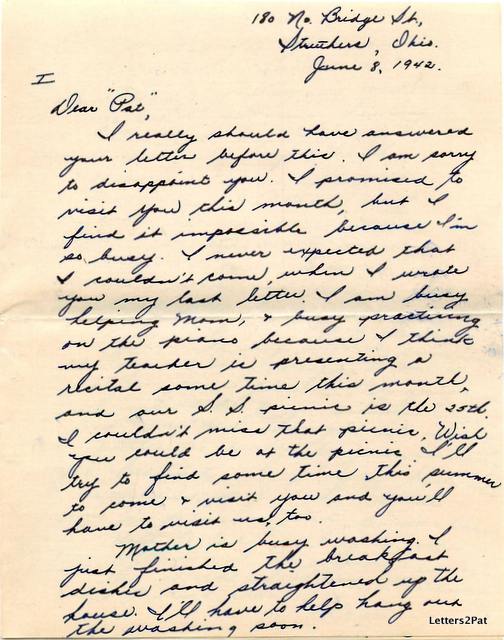 180 No. Bridge St.,
Struthers, Ohio.
June 8, 1942.
I
Dear "Pat",
I really should have answered
your letter before this. I am sorry
to disappoint you. I promised to
visit you this month, but I
find it impossible because I'm
so busy. I never expected that
I couldn't come, when I wrote
you my last letter. I am busy
helping Mom, & busy practicing
on the piano because I think
my teacher is presenting a
recital some time this month,
and our S. S. picnic is the 25th.
I couldn't miss that picnic. Wish
you could be at the picnic. I'll
try to find some time this summer
to come & visit you and you'll
have to visit us, too.
Mother is busy washing. I
just finished the breakfast
dishes and straightened up the
house. I'll have to help hang out
the washing soon.
Letters2Pat